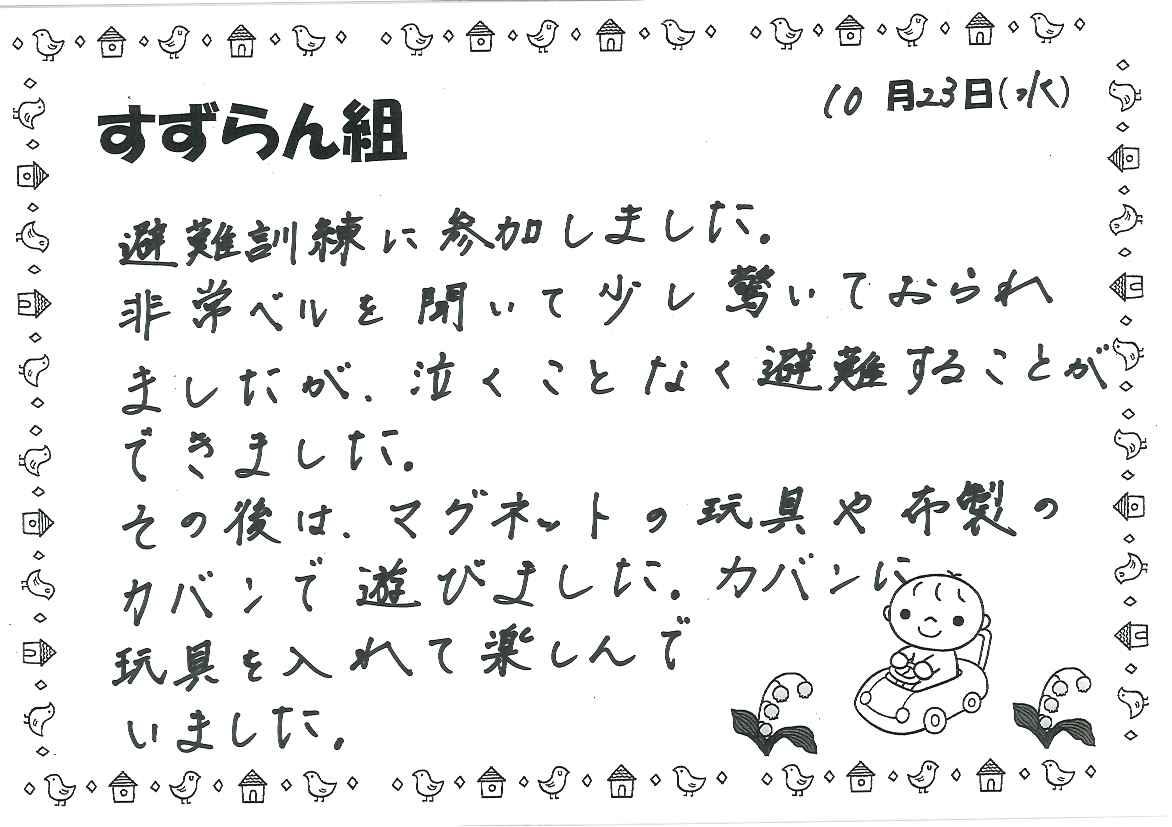 10月23日(水)
すずらん組
避難訓練に参加しました。
非常ベルを聞いて少し驚いておられ
ましたが、泣くことなく避難することが
できました。
その後は、マグネットの玩具や布製の
カバンで遊びました。カバンに
玩具を入れて楽しんで
いました。